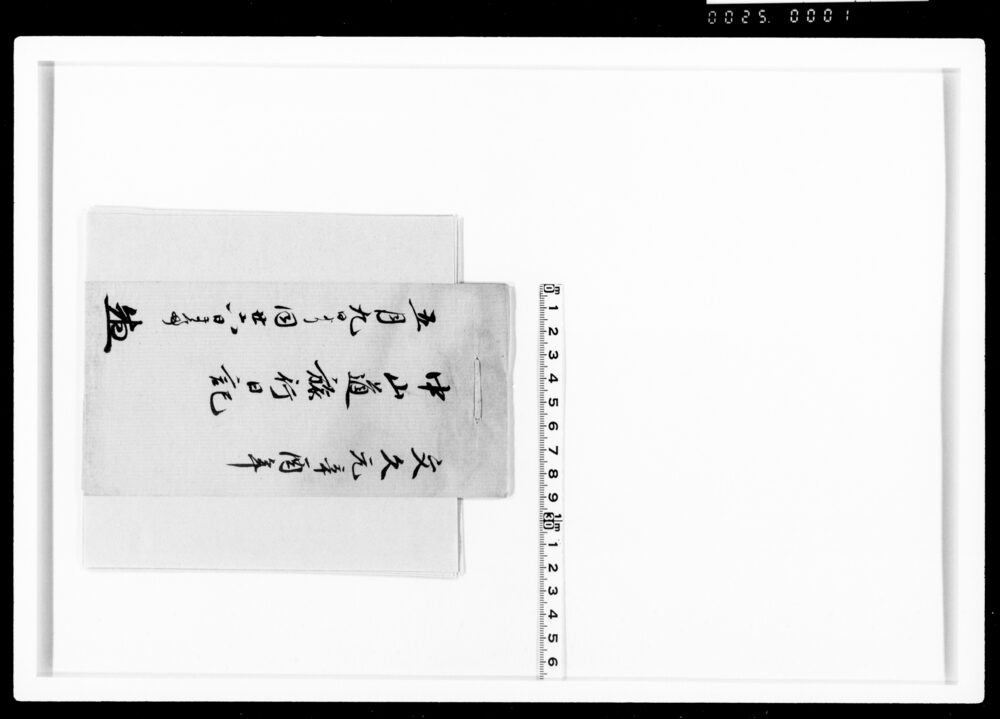 0025.0001
文久元辛酉年
中山道旅行日記
五月九日ゟ同廿 日
1 2 3 4 5 6 7 8 9 10 1 2 3 4 5 6